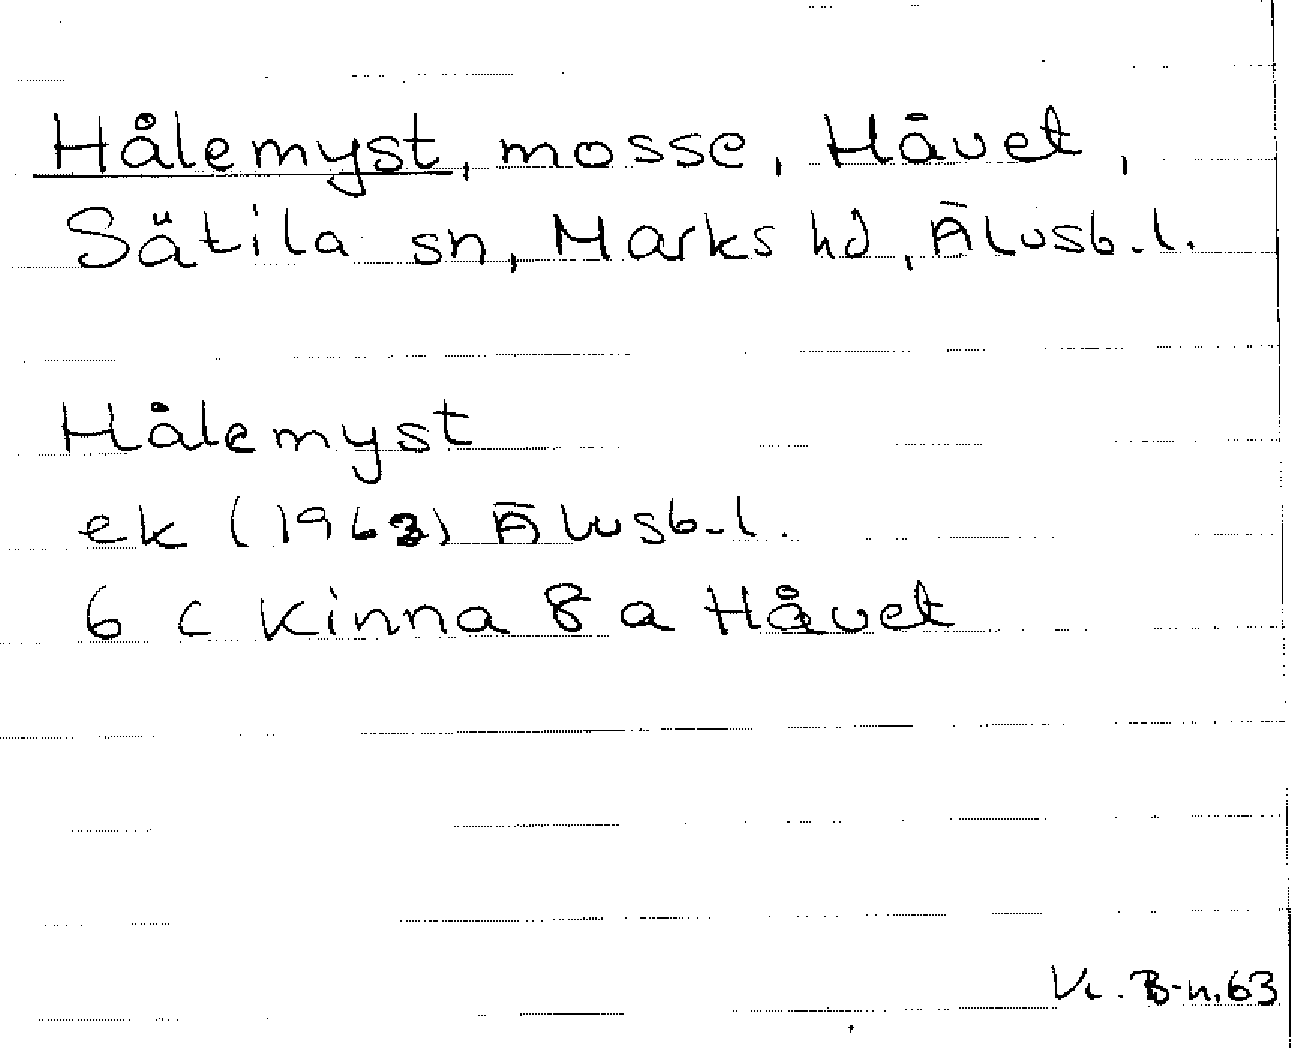 Hålemyst, mosse, Håvet,
Sätila sn, Marks hd, Älvsb.l.
Hålemyst
ek (1963) Älvsb.l.
6 C Kinna 8 a Håvet
V. B-n. 63